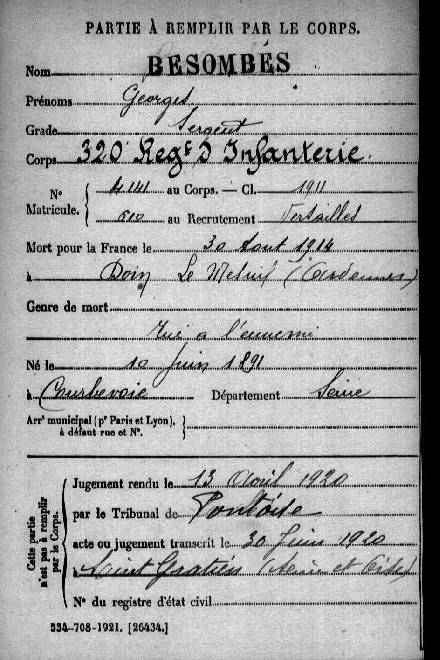 PARTIE À REMPLIR PAR LE CORPS.
Nom BESOMBES
Prénoms Georges
Grade Sergent
Corps 320e Regt d'Infanterie.
N° Matricule. { 4141 au Corps. — Cl. 1911
610 au Recrutement Versailles
Mort pour la France le 30 Aout 1914
à Le Mesnil (Ardennes)
Genre de mort
Tué a l'ennemi
Né le 10 Juin 1891
à Courbevoie Département Seine
Arrt municipal (pr Paris et Lyon), à défaut rue et N°. }
Cette partie n'est pas à remplir par le Corps. {
Jugement rendu le 13 Avril 1920
par le Tribunal de Pontoise
acte ou jugement transcrit le 30 Juin 1920
à Saint Gratien (Seine et Oise)
N° du registre d'état civil
534-708-1921. [26434.]